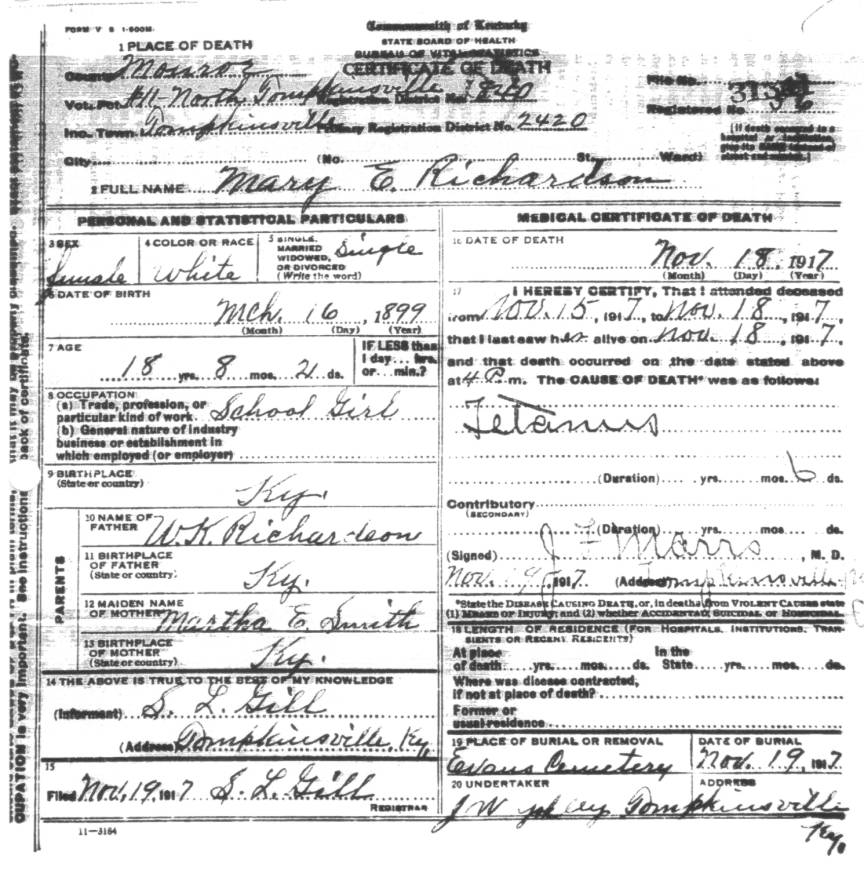 FORM V S 1-500M.
Commonwealth of Kentucky
STATE BOARD OF HEALTH
BUREAU OF VITAL STATISTICS
CERTIFICATE OF DEATH
1 PLACE OF DEATH
County Monroe
File No. 313
Vot. Pct. #11 North Tompkinsville Registration District No. 1860
Registered No.
Inc. Town Tompkinsville Primary Registration District No. 2420
[If death occurred in a hospital or institution, give its NAME instead of street and number.]
City (No. St., Ward)
2 FULL NAME Mary E. Richardson
PERSONAL AND STATISTICAL PARTICULARS
3 SEX Female
4 COLOR OR RACE White
5 SINGLE, MARRIED WIDOWED, OR DIVORCED (Write the word) Single
6 DATE OF BIRTH
Mch. 16, 1899
(Month) (Day) (Year)
7 AGE
18 yrs. 8 mos. 2 ds.
IF LESS than 1 day... hrs. or... min.?
8 OCCUPATION
(a) Trade, profession, or particular kind of work. School Girl
(b) General nature of industry
business or establishment in
which employed (or employer)
9 BIRTHPLACE
(State or country) Ky.
PARENTS
10 NAME OF FATHER W.K. Richardson
11 BIRTHPLACE OF FATHER
(State or country) Ky.
12 MAIDEN NAME OF MOTHER Martha E. Smith
13 BIRTHPLACE OF MOTHER
(State or country) Ky.
14 THE ABOVE IS TRUE TO THE BEST OF MY KNOWLEDGE
(Informant) S. L. Gill
(Address) Tompkinsville, Ky.
15
Filed Nov. 19, 1917 S. L. Gill
REGISTRAR
11-3164
MEDICAL CERTIFICATE OF DEATH
16 DATE OF DEATH
Nov. 18, 1917
(Month) (Day) (Year)
17 I HEREBY CERTIFY, That I attended deceased
from Nov. 15, 1917, to Nov. 18, 1917,
that I last saw her alive on Nov. 18, 1917,
and that death occurred on the date stated above
at 4 P. m. The CAUSE OF DEATH* was as follows:
Tetanus
(Duration) yrs. mos. 6 ds.
Contributory
(SECONDARY)
(Duration) yrs. mos. ds.
(Signed) J F Marrs, M. D.
Nov. 19, 1917 (Address) Tompkinsville, Ky
*State the DISEASE CAUSING DEATH, or, in deaths from VIOLENT CAUSES state
(1) MEANS OF INJURY; and (2) whether ACCIDENTAL, SUICIDAL or HOMICIDAL
18 LENGTH OF RESIDENCE (FOR HOSPITALS, INSTITUTIONS, TRANSIENTS OR RECENT RESIDENTS)
At place of death yrs. mos. ds. In the State yrs. mos. ds.
Where was disease contracted,
if not at place of death?
Former or
usual residence
19 PLACE OF BURIAL OR REMOVAL
Evans Cemetery
DATE OF BURIAL
Nov. 19, 1917
20 UNDERTAKER
J W
ADDRESS
Tompkinsville
Ky.
OUPATION is very important. See instructions
back of certificate.